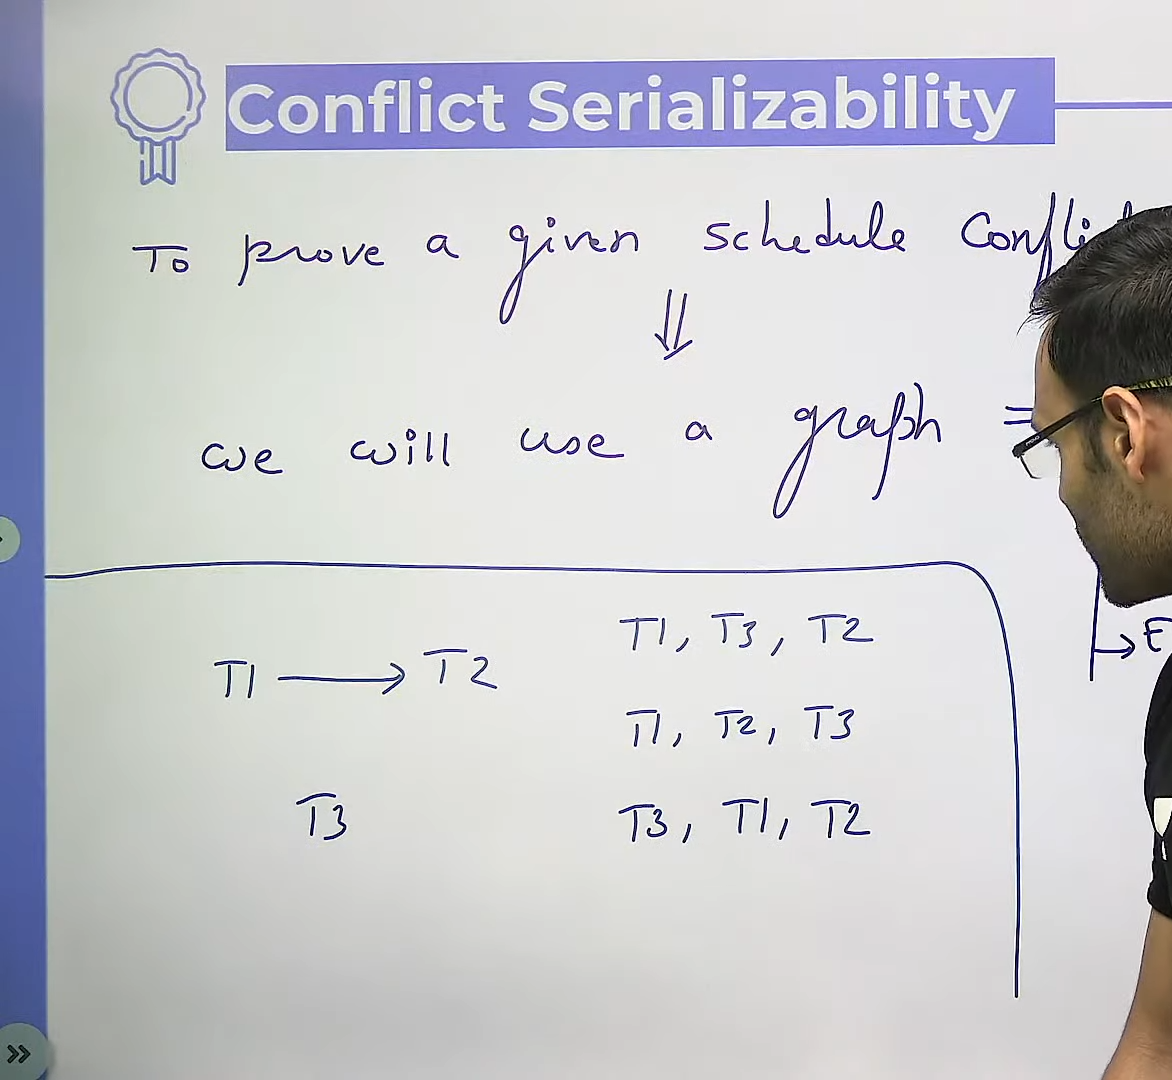 Conflict Serializability
To prove a given schedule
we will use a graph =
T1, T3, T2
T1 → T2
T1, T2, T3
T3
T3, T1, T2